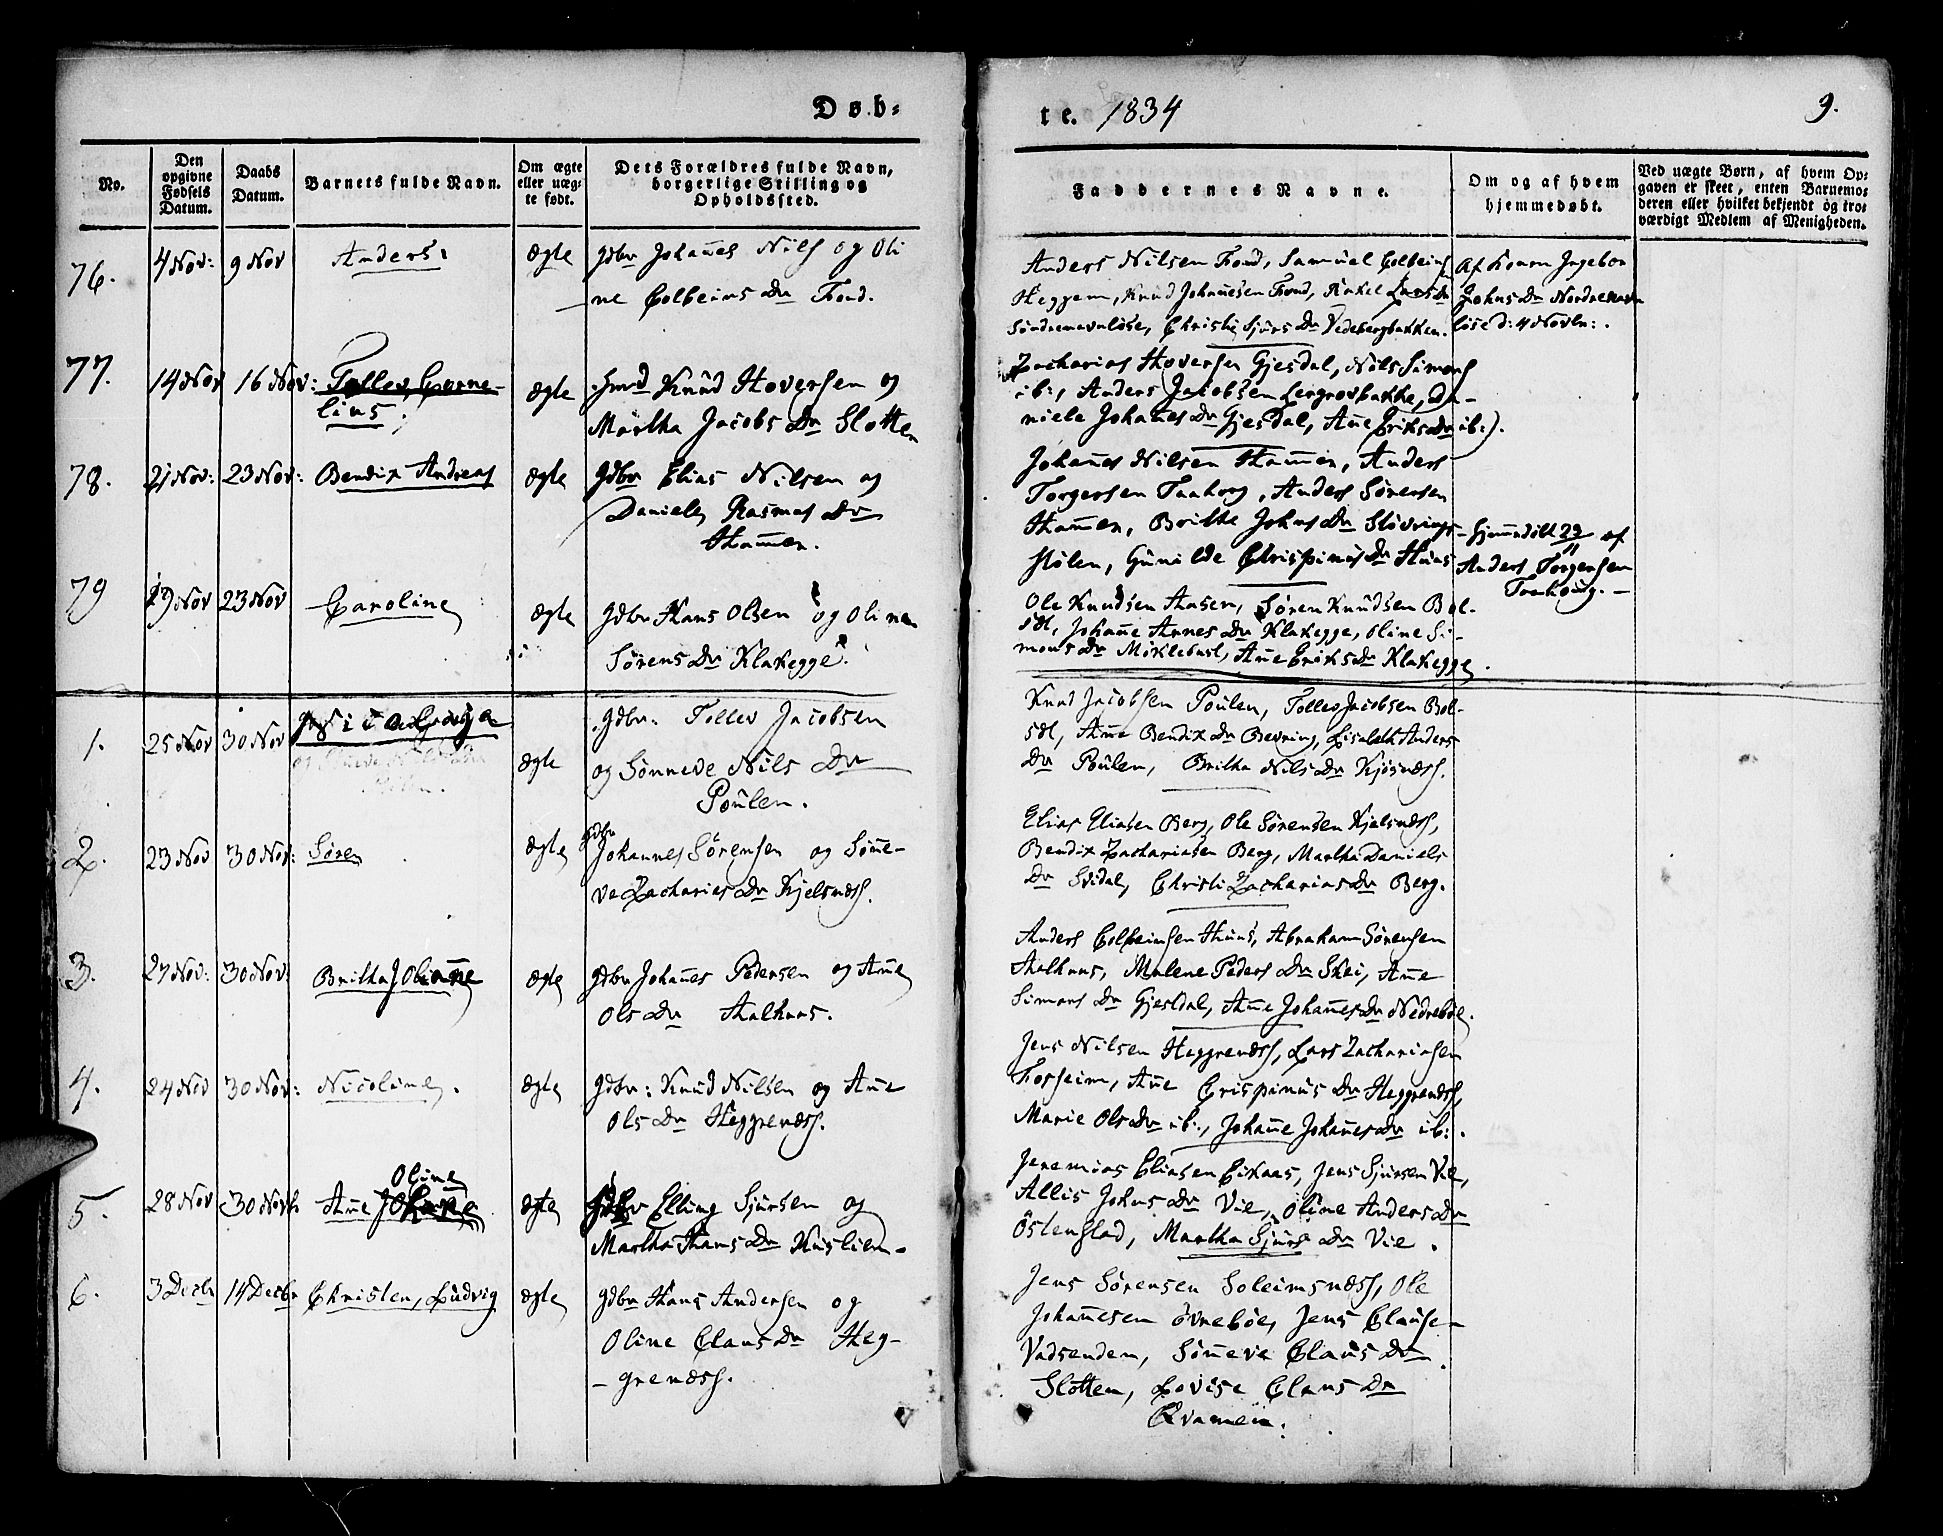 Døb=
te. 1834
9.
No.
Den opgivne Fødsels Datum.
Daabs Datum.
Barnets fulde Navn.
Om ægte eller uæg= te født.
Dets Forældres fulde Navn, borgerlige Stilling og Opholdssted.
Faddernes Navne.
Om og af hvem hjemmedøbt.
Ved uægte Børn, af hvem Op= gaven er skeet, enten Barnemo= deren eller hvilket bekjendt og tro= værdigt Medlem af Menigheden.
76. 4 Nov: 9 Nov Anders. Ægte Gdbr Johannes Nils og Oli
ne Colbeins Dr Fond.
Anders Nilsen Fond, Samuel Colbeins
Heggem, Knud Johannesen Fond, Rakel Lars Dr
Søndrenavnløse, Christi Sjurs Dr Vedebergbakken.
Af Konen Ingebor
Johns Dr Nordrenavn
løse d: 4 Novbr:.
77. 14 Nov 16 Nov: Tollev Corne-
lius. Ægte Knud Hoversen og
Martha Jacobs Dr Slotten
Zacharias Hoversen Gjesdal, Nils Simons
ib:, Anders Jacobsen Lergrovbakke, Da-
niele Johannes Dr Gjesdal, Anne Eriks Dr ib:).
78. 21 Nov: 23 Nov: Bendix Andreas Ægte Gdbr Elias Nilsen og
Daniele Rasmus Dr
Hammen.
Johannes Nilsen Hammen, Anders
Torgersen Taaborg, Anders Sørensen
Hammen, Brithe Johns Dr Støvrings-
stølen, Gunilde Chrispinus Dr Huus
Hjemmedøbt 22/11 af
Anders Torgersen
79 19 Nov 23 Nov Caroline Ægte Gdbr Hans Olsen og Oline
Sørens Dr Klakegge.
Ole Knudsen Aasen, Søren Knudsen Bol-
sæt, Johanne Annes Dr Klakegge, Oline Si-
mons Dr Myklebust, Anne Eriks Dr Klakegge.
1. 25 Nov 30 Nov Ægte Gdbr: Tollev Jacobsen
og Sønneve Nils Dr
Poulen.
Knud Jacobsen Poulen, Tollev Jacobsen Bol-
sæt, Anne Bendix Dr Bevring, Lisabeth Anders
Dr Poulen, Britha Nils Dr Kjøsnæss.
2. 23 Nov 30 Nov: Søren Ægte Gdbr
Johannes Sørensen og Sønne-
ve Zacharias Dr Kjelsnæss.
Elias Eliasen Berg, Ole Sørensen Kjelsnæss,
Bendix Zachariasen Berg, Martha Daniels
Dr Svidal, Christi Zacharias Dr Berg.
3. 27 Nov: 30 Nov: Britha Olianne Ægte Gdbr Johannes Pedersen og Anne
Ols Dr Aalhuus.
Anders Colbeinsen Huus, Abraham Sørensen
Aalhuus, Malene Peders Dr Skei, Anne
Simons Dr Gjesdal, Anne Johannes Dr Nedrebøe.
4. 24 Nov 30 Nov: Nicoline. Ægte Gdbr: Knud Nilsen og Anne
Ols Dr Heggrenæss.
Jens Nilsen Heggrenæss, Lars Zachariasen
Fosheim, Anne Crispinus Dr Heggrenæss,
Marie Ols Dr ib:, Johanne Johannes Dr ib:.
5. 28 Nov 30 Novb Anne Oline Ægte Gdbr Elling Sjursen og
Martha Hans Dr Huslien.
Jeremias Eliasen Eikaas, Jens Sjursen Vie,
Allis Johns Dr Vie, Oline Anders Dr
Østenstad, Martha Sjurs Dr Vie.
6. 3 Decbr 14 Decbr Christen, Ludvig Ægte Gdbr Hans Andersen og
Oline Claus Dr Heg-
grenæss.
Jens Sørensen Soleimsnæss, Ole
Johannesen Øvrebøe, Jens Clause-
Vadsenden, Sønneve Claus Dr
Slotten, Lovise Claus Dr
Qvamen.